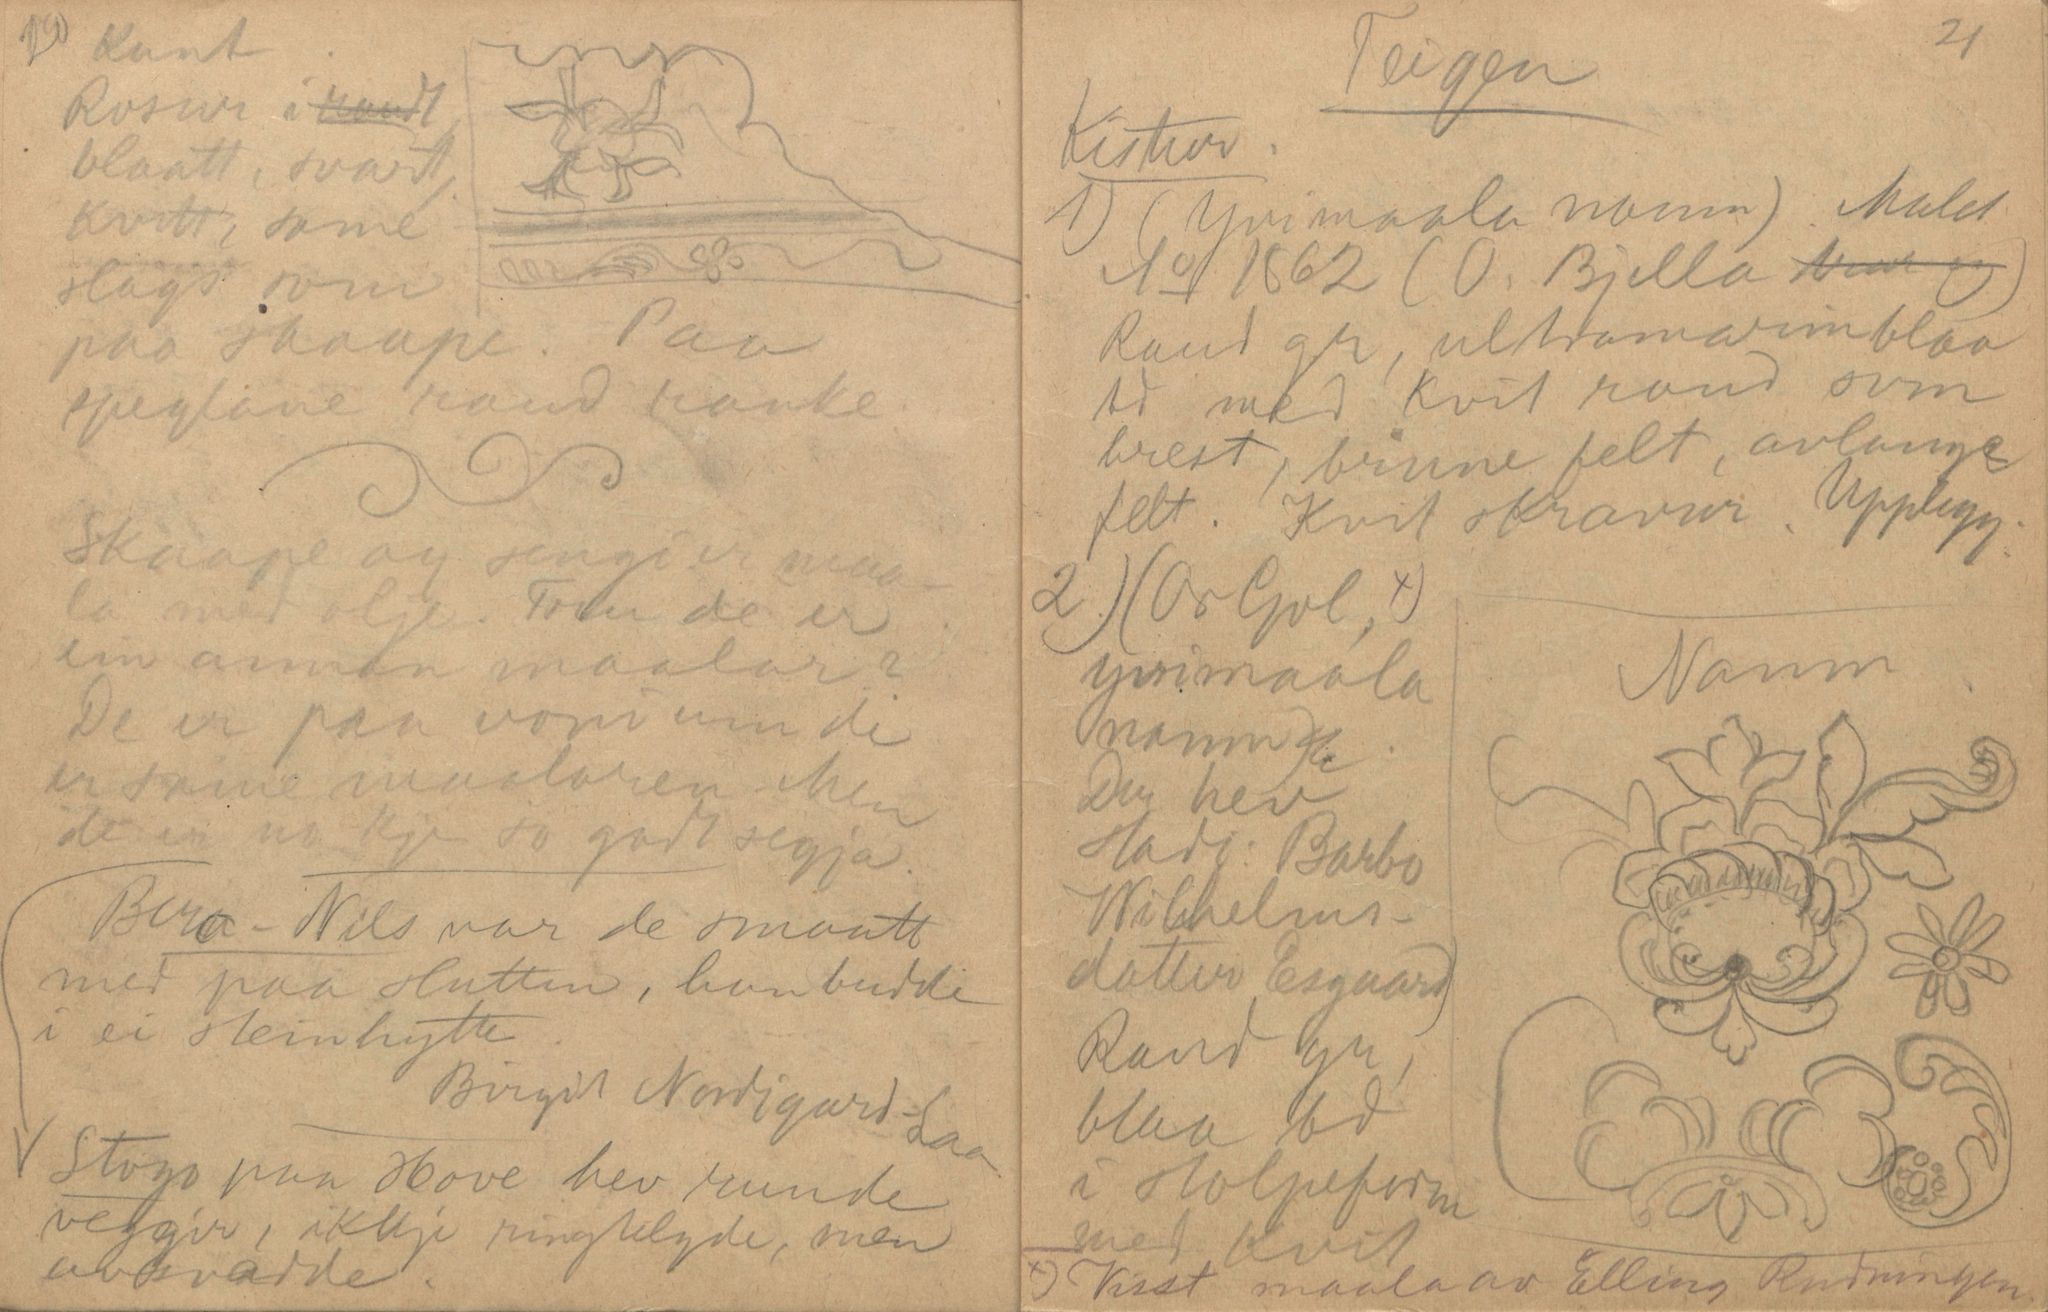 Kant
Rosur i raudt,
blaatt, svart,
Kvitt, same
slags som
paa skaape. Paa
speglane raud ranke
Skaape og sengi er maa-
la med olje. Trur de er
ein annan maalar?
De er paa voni um di
er same maalaren. Men
de er no kje so godt segja.
Bera-Nils var de smaatt
med paa slutten, han budde
i ei steinhytte
Birgit Nordigard-Laa
Stogo paa Hove hev runde
veggir, ikkje ringklyde, men
avsvadde.
21
Teigen
Kistur.
1) (Yvimaala namn). Malt
No 1862 (O. Bjella)
Raud gr, ultramarinblaa
bd med kvit rand som
brest, brune felt, avlange
felt. Kvit skravur. Upplegg.
2) (Or Gol, x)
yvimaala
namn
Der hev
stade: Barbo
Wilhelms-
datter Esgaard)
Raud gr,
blaa bd
i stolpeform
med kvit
Namn
x) Visst maala av Elling Rudningen.